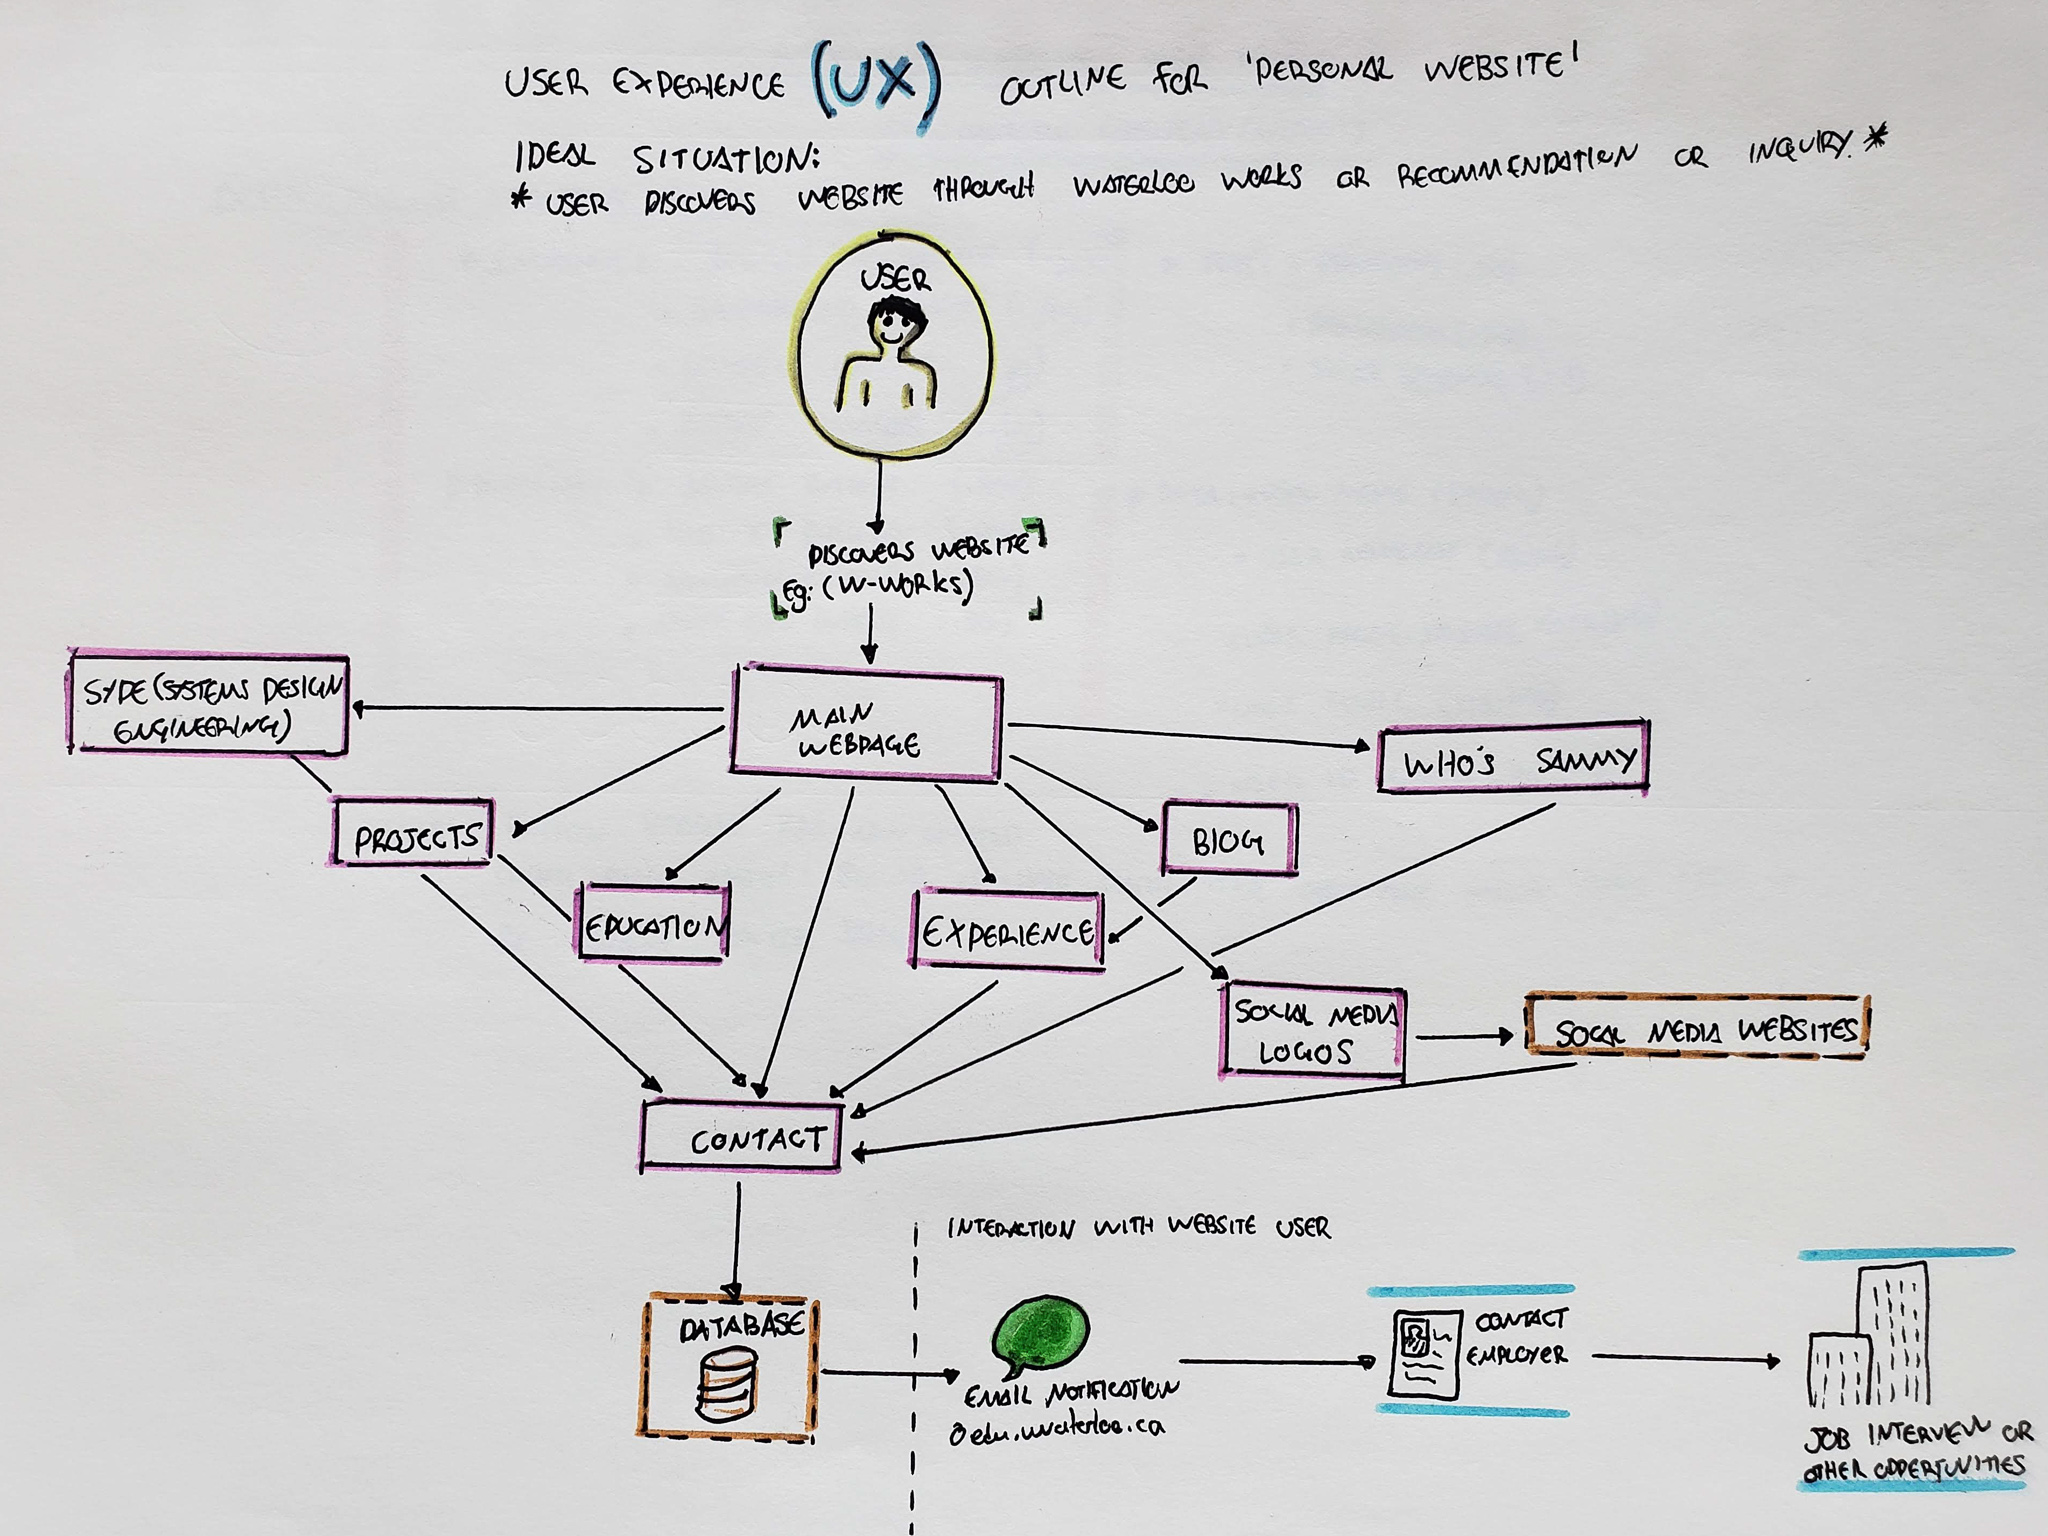 USER EXPERIENCE (UX) OUTLINE FOR 'PERSONAL WEBSITE'
IDEAL SITUATION:
* USER DISCOVERS WEBSITE THROUGH WATERLOO WORKS OR RECOMMENDATION OR INQUIRY. *
USER
DISCOVERS WEBSITE
Eg: (W-WORKS)
SYDE (SYSTEMS DESIGN
ENGINEERING)
MAIN
WEBPAGE
WHO'S SAMMY
PROJECTS
BlOG
EDUCATION
EXPERIENCE
SOCIAL MEDIA
LOGOS
SOCAL MEDIA WEBSITES
CONTACT
INTERACTION WITH WEBSITE USER
DATABASE
EMAIL NOTIFICATION
@edu.uwaterloo.ca
CONTACT
EMPLOYER
JOB INTERVIEW OR
OTHER OPPERTUNITIES